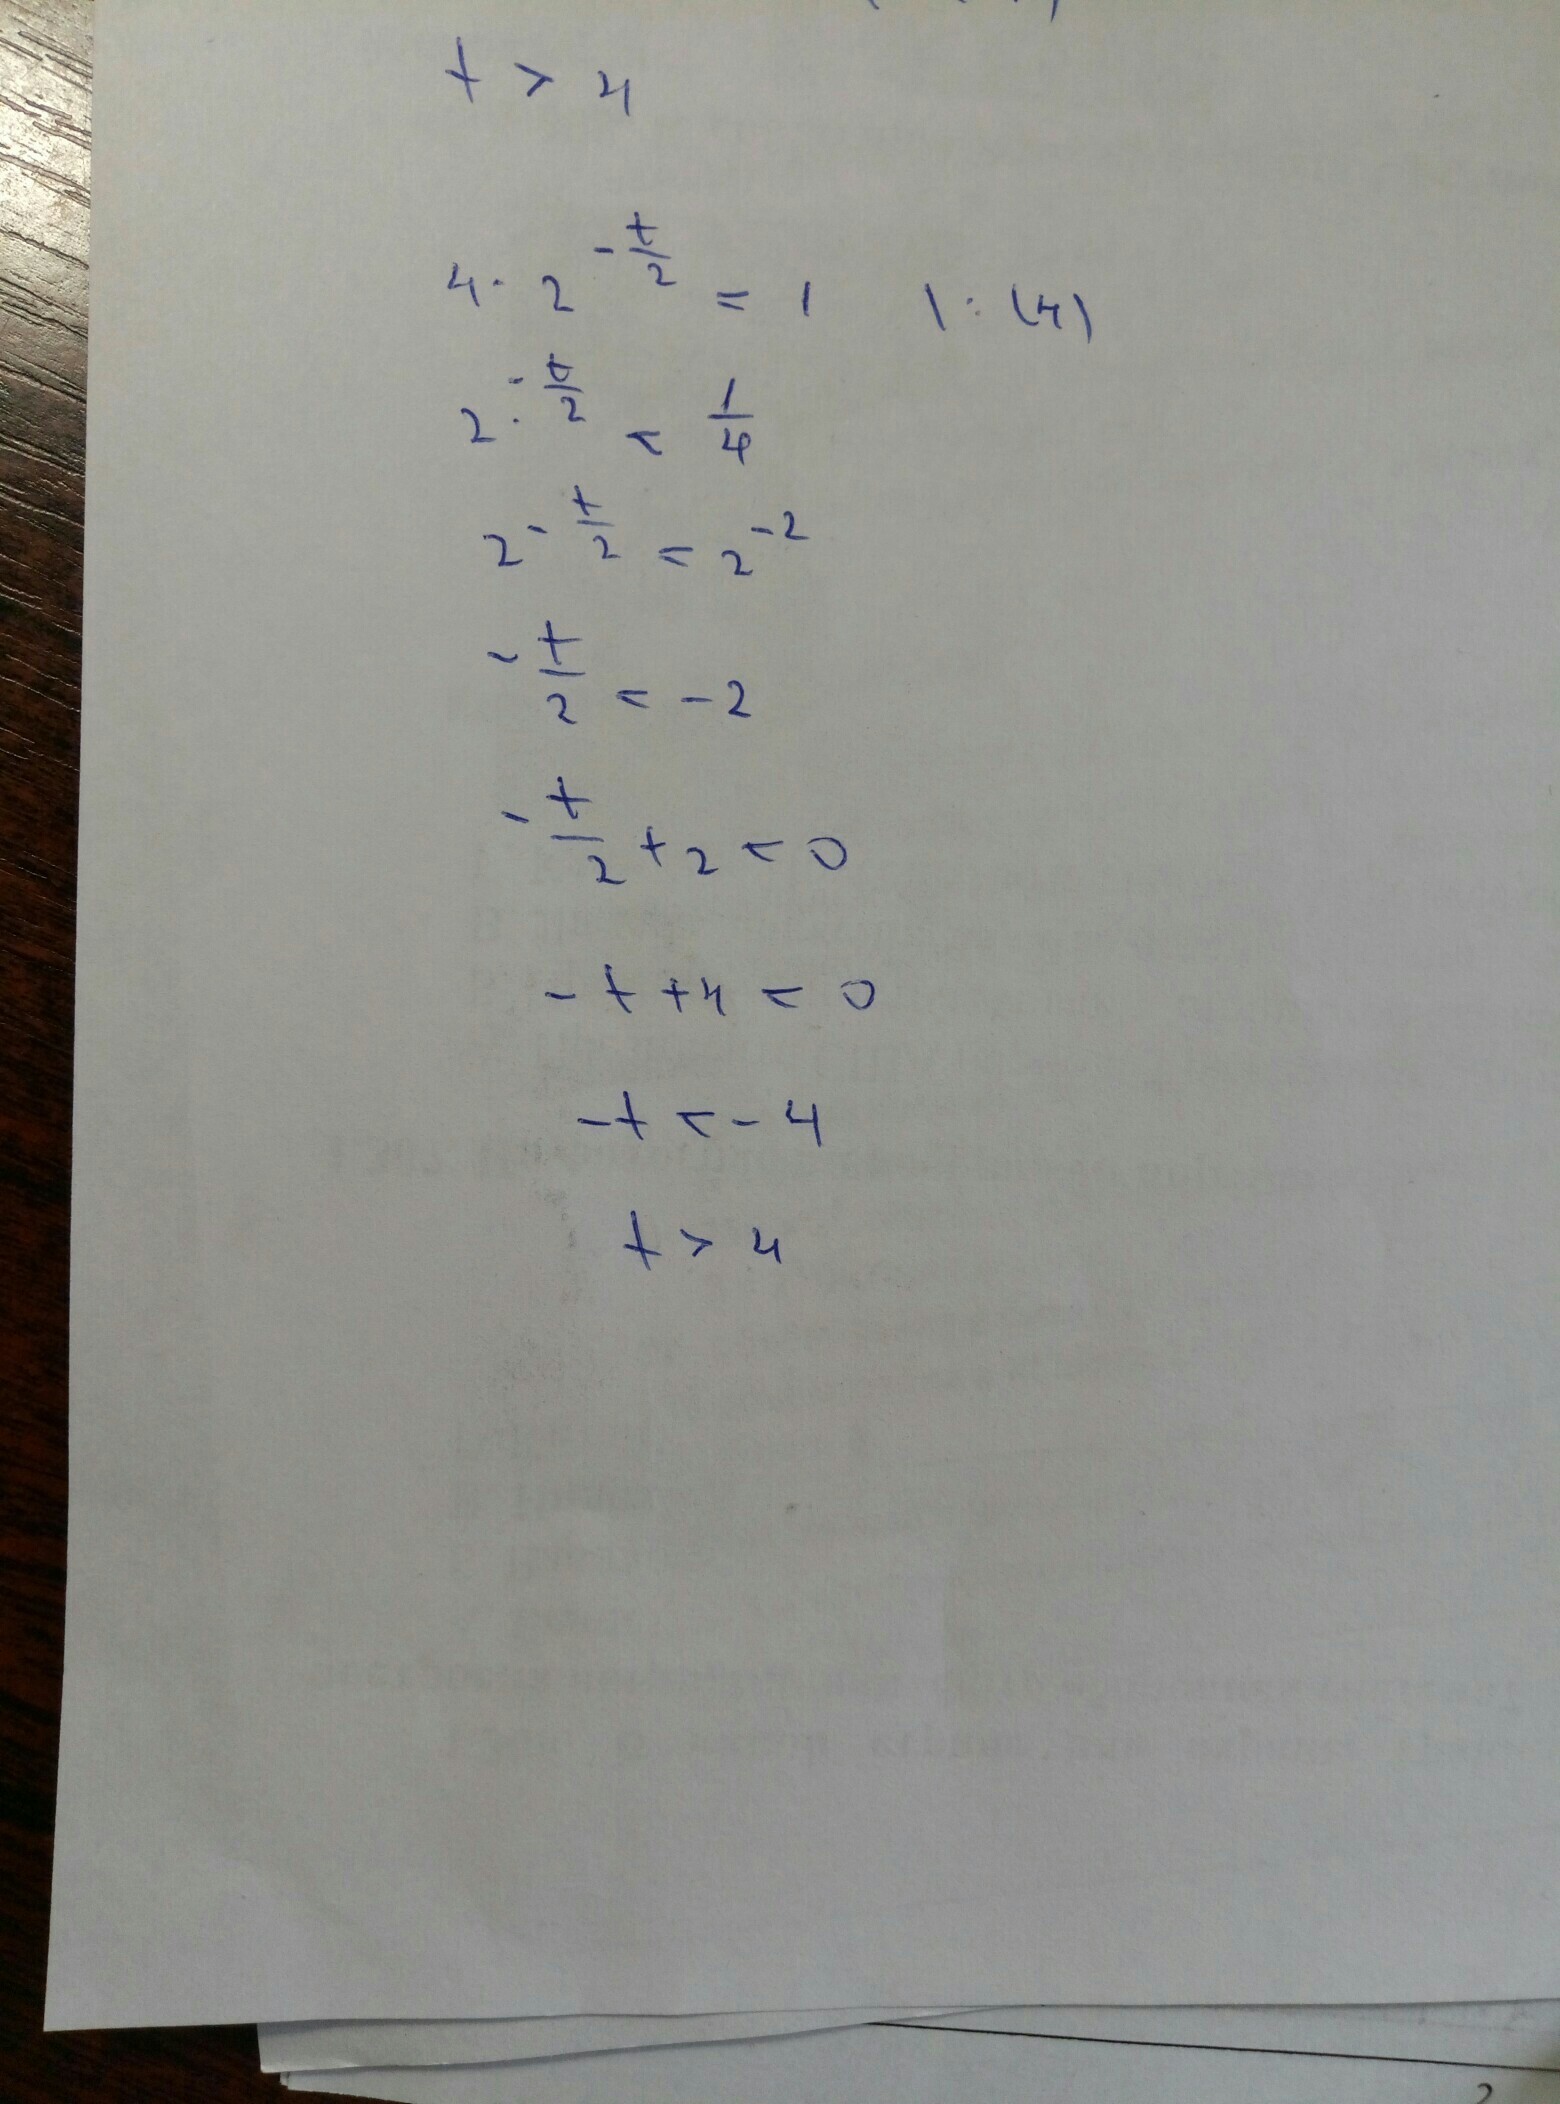 t > 4
4 · 2^{-\frac{t}{2}} = 1 | : (4)
2^{-\frac{t}{2}} < \frac{1}{4}
2^{-\frac{t}{2}} = 2^{-2}
-\frac{t}{2} < -2
-\frac{t}{2} + 2 < 0
-t + 4 < 0
-t < -4
t > 4
2